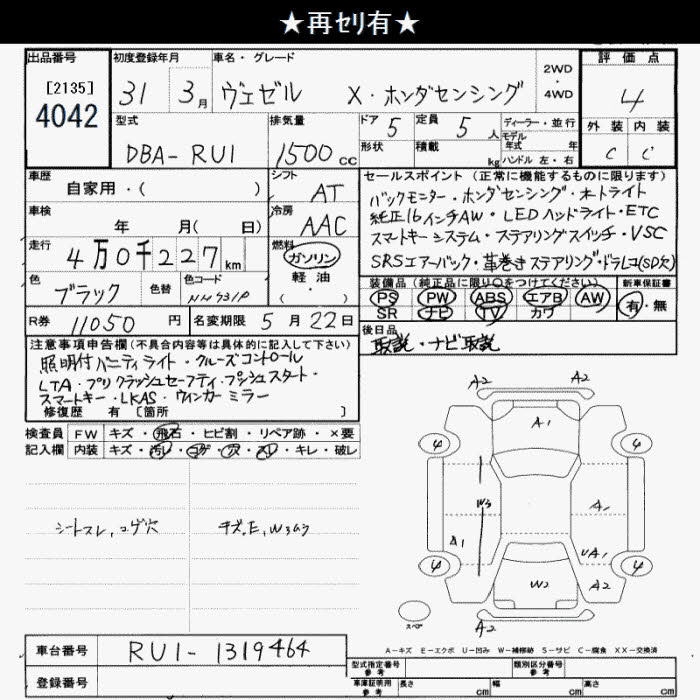 ★再ｾﾘ有★
出品番号 初度登録年月 車名・グレード 2WD・4WD 評価点
[2135]
4042 31 3月 ヴェゼル X・ホンダセンシング 4
型式 排気量 ドア 5 定員 5人 ディーラー・並行 外装 内装
DBA-RU1 1500cc 形状 積載 kg モデル年式 年 ハンドル 左・右 C C
車歴 シフト セールスポイント (正常に機能するものに限ります)
自家用・( ) AT バックモニター・ホンダセンシング・オートライト
車検 冷房 純正16インチAW・LEDヘッドライト・ETC
年 月( 日) AAC スマートキーシステム・ステアリングスイッチ・VSC
走行 燃料 SRSエアーバック・革巻きステアリング・ドラレコ(SD欠)
4万0千227km ガソリン
軽油
( ・ )
色 色替 色コード 装備品 (純正品に限り○をつけてください) 新車保証書
ブラック NH731P PS PW ABS エアB AW 有・無
SR ナビ TV カワ
R券 11050円 名変期限 5月22日 後日品
取説・ナビ取説
注意事項申告欄(不具合内容等は具体的に記入して下さい)
照明付バニティライト・クルーズコントロール
LTA・プリクラッシュセーフティ・プッシュスタート・
スマートキー・LKAS・ウィンカーミラー
修復歴 有 [箇所 ]
検査員 FW キズ・飛石・ヒビ割・リペア跡・×要
記入欄 内装 キズ・汚レ・コゲ・穴・スレ・キレ・破レ
シートスレ,コゲ穴 キズ,E,
A2 A2
A1
4 4
W3 A1
A1 UA1
4 4
W2 A2
スペア A2
車台番号 RU1-1319464
A-キズ E-エクボ U-凹み W-補修跡 S-サビ C-腐食 XX-交換済
登録番号
型式指定番号 参考 類別区分番号 参考
車庫証明用 参考 長さ cm 幅 cm 高さ cm